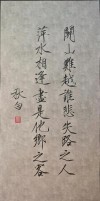 關山難越誰悲失路之人
萍水相逢盡是他鄉之客